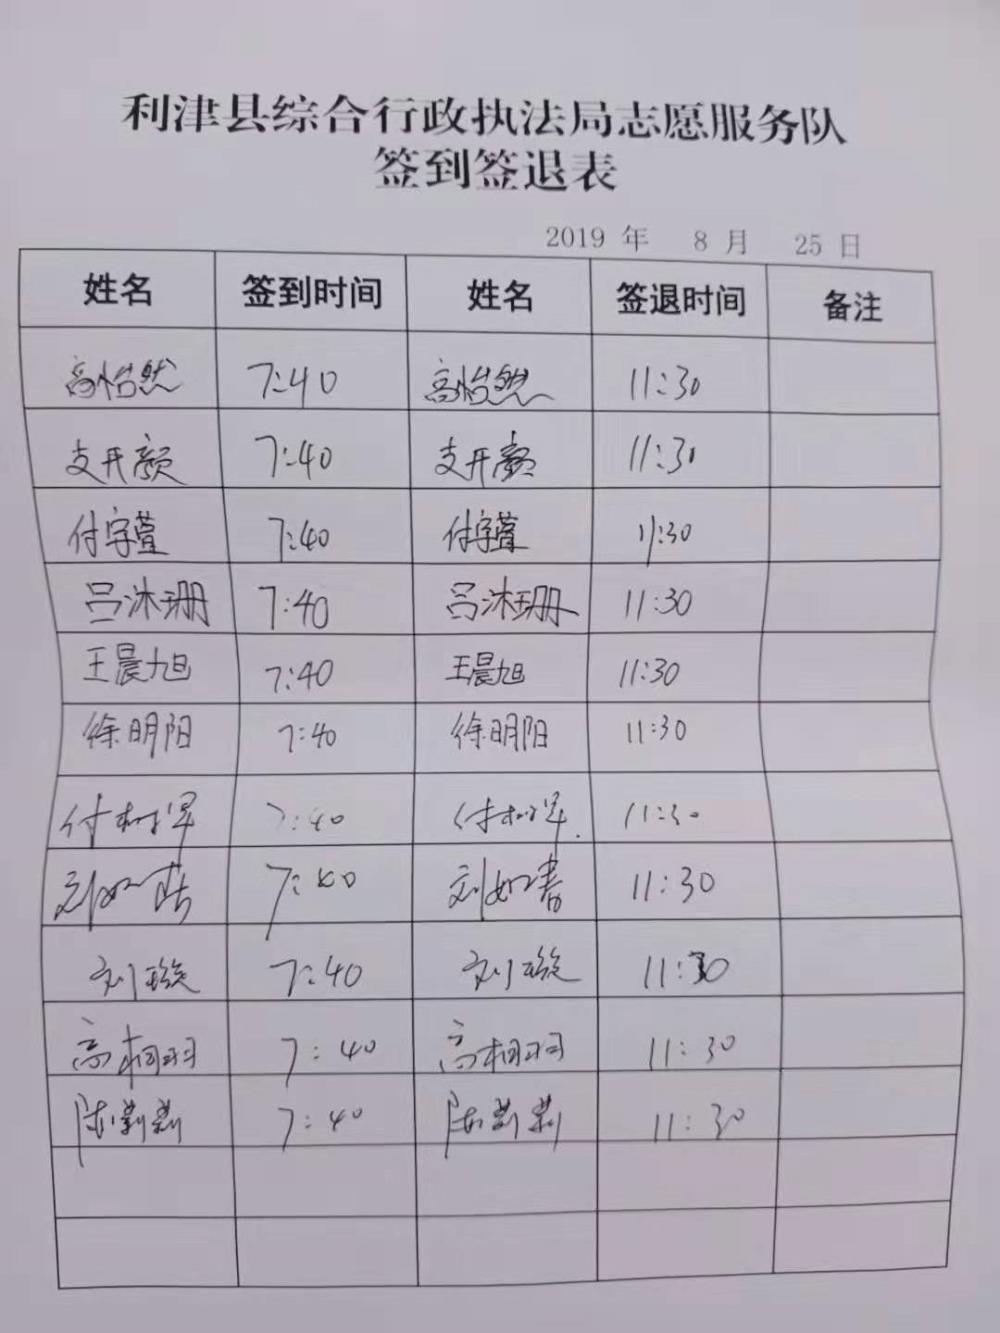 利津县综合行政执法局志愿服务队
签到签退表
2019 年 8 月 25 日
姓名 签到时间 姓名 签退时间 备注
高怡然 7:40 高怡然 11:30
支开颜 7:40 支开颜 11:30
付宇萱 7:40 付宇萱 11:30
吕沐珊 7:40 吕沐珊 11:30
王晨旭 7:40 王晨旭 11:30
徐明阳 7:40 徐明阳 11:30
7:40 11:30
7:40 刘如春 11:30
刘璇 7:40 刘璇 11:30
高相羽 7:40 高相羽 11:30
陈莉莉 7:40 陈莉莉 11:30